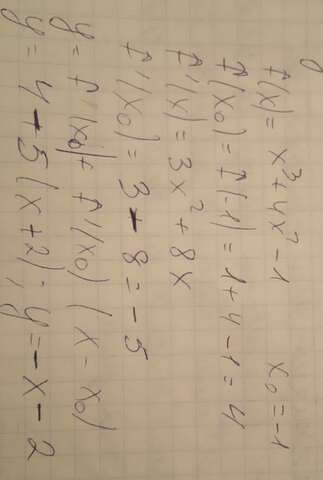 f(x) = x³+4x²-1 x₀=-1
f(x₀) = f(-1) = 1+4-1=4
f'(x) = 3x²+8x
f'(x₀) = 3-8=-5
y= f'(x₀)+ f'(x₀) (x-x₀)
y= 4-5(x+2); y=-x-2